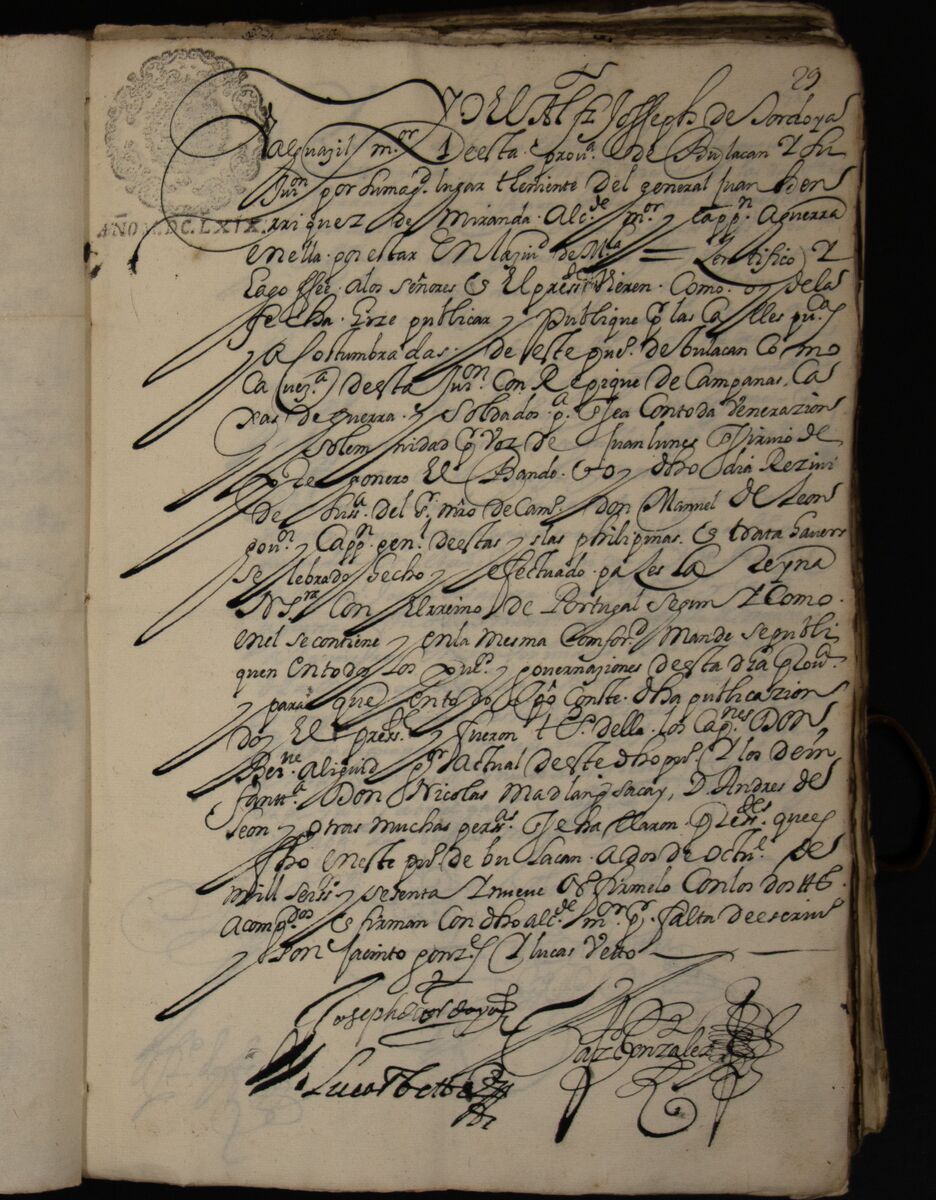 29
Yo El Alfz Joseph de Cordoya
alguazil mor Deesta provª de Bulacan y su
Juron por su magd. lugar theniente del general Juan Hen
rriquez de Miranda Alcde mor y Cappn aguerra
AÑO M.DC.LXIX.
enella por estar En la Ziud de Mla = Zertifico y
hago ffee alos señores q El presste Vieren Como oy dela
fecha hize publicar y publique por las Calles puas
y acostumbradas de este puo. de bulacan Como
Cavezª desta Juron Con Repique de Campanas, Ca
xas de guerra y Soldados pª q sea Contoda Venerazion
y solemnidad por Voz de Juan lunes q sirvio de
pregonero El Bando q oy dho dia Rezivi
de su ssª del sr mro de Campo don Manuel de Leon
govor y Cappn genl deestas yslas philipinas q trata haver
se lebrado hecho y efectuado pazes la Reyna
Nrª Srª Con El rreino de Portugal segun y Como
enel se contiene y enla mesma Comford Mande se publi
quen En todos los pueos y governaziones desta dha provª
y para que En todo tpo Conste dha publicazion
doy El presste y fueron tos della los Capnes Don
Berne aliguid gor actual deeste dho puo y los de in
fantª Don Nicolas Madlangsacay, D. Andres de
leon y otras muchas perssas q se hallaron pressdes quees
fho eneste puo de bulacan a dos de Octre de
mill seisso y sesenta y nueve as firmelo Con los dos tts
acompdos q firman Con dho alcde mor por falta de escriuo
son Jacinto gonzs y lucas Vetto
Joseph de Cordoya
Jazo Gonzalez
Lucas Betto